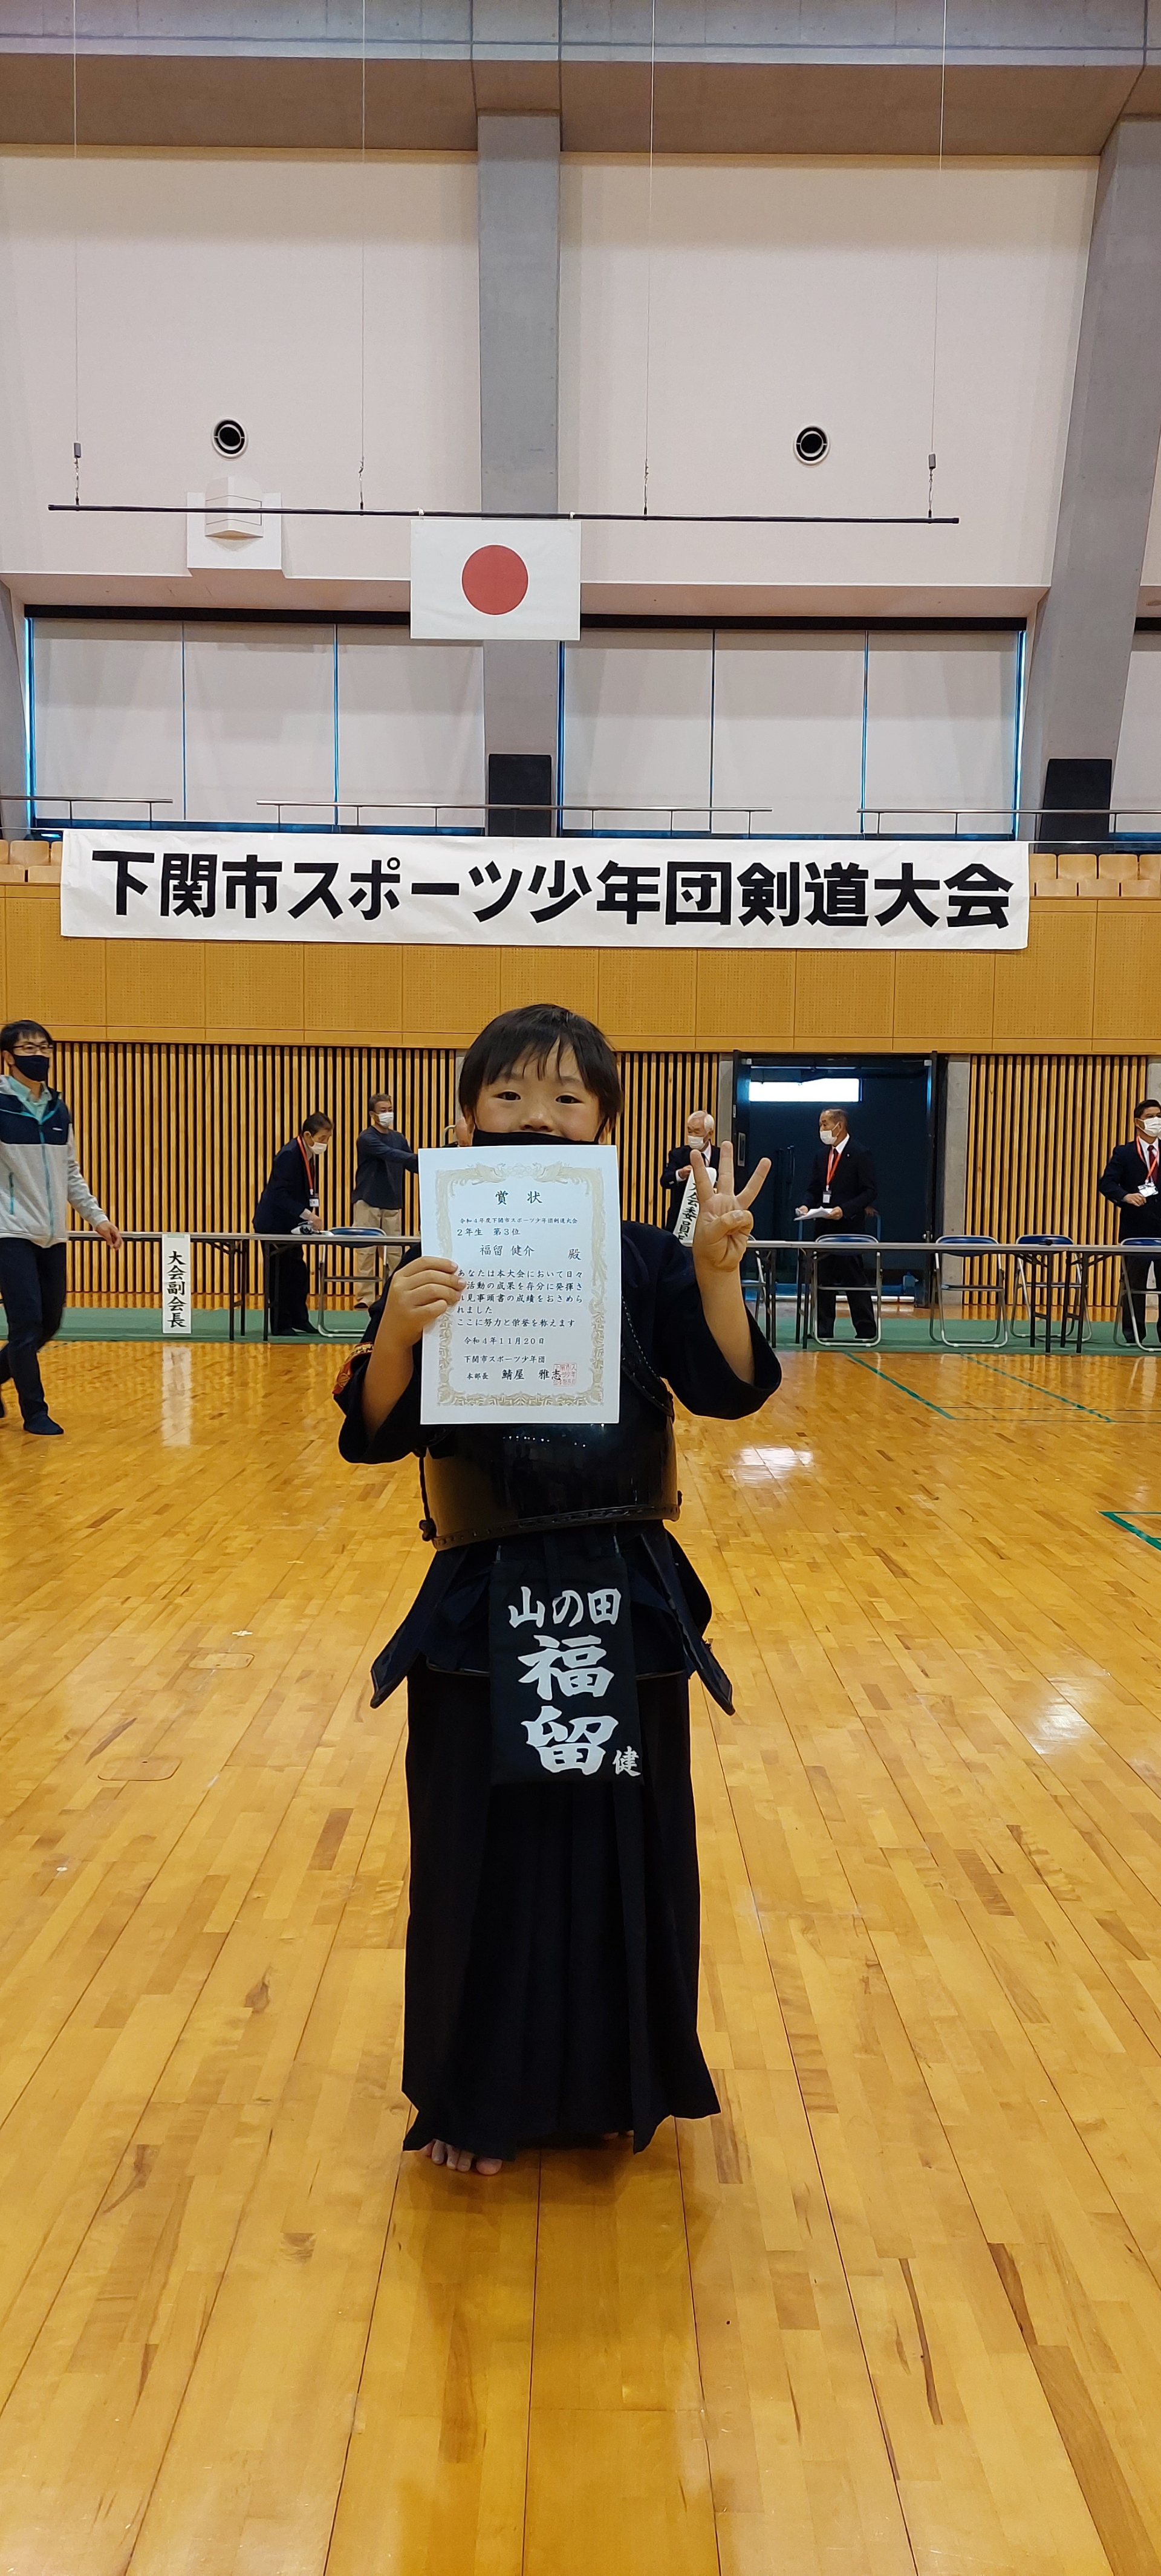 下関市スポーツ少年団剣道大会
賞状
令和4年度下関市スポーツ少年団剣道大会
2年生 第3位
福留 健介 殿
あなたは本大会において日々
活動の成果を存分に発揮さ
れ見事頭書の成績をおさめら
れました
ここに努力と栄誉を称えます
令和4年11月20日
下関市スポーツ少年団
本部長 鯖屋 雅志
大会副会長
大会委員
山の田
福留
健